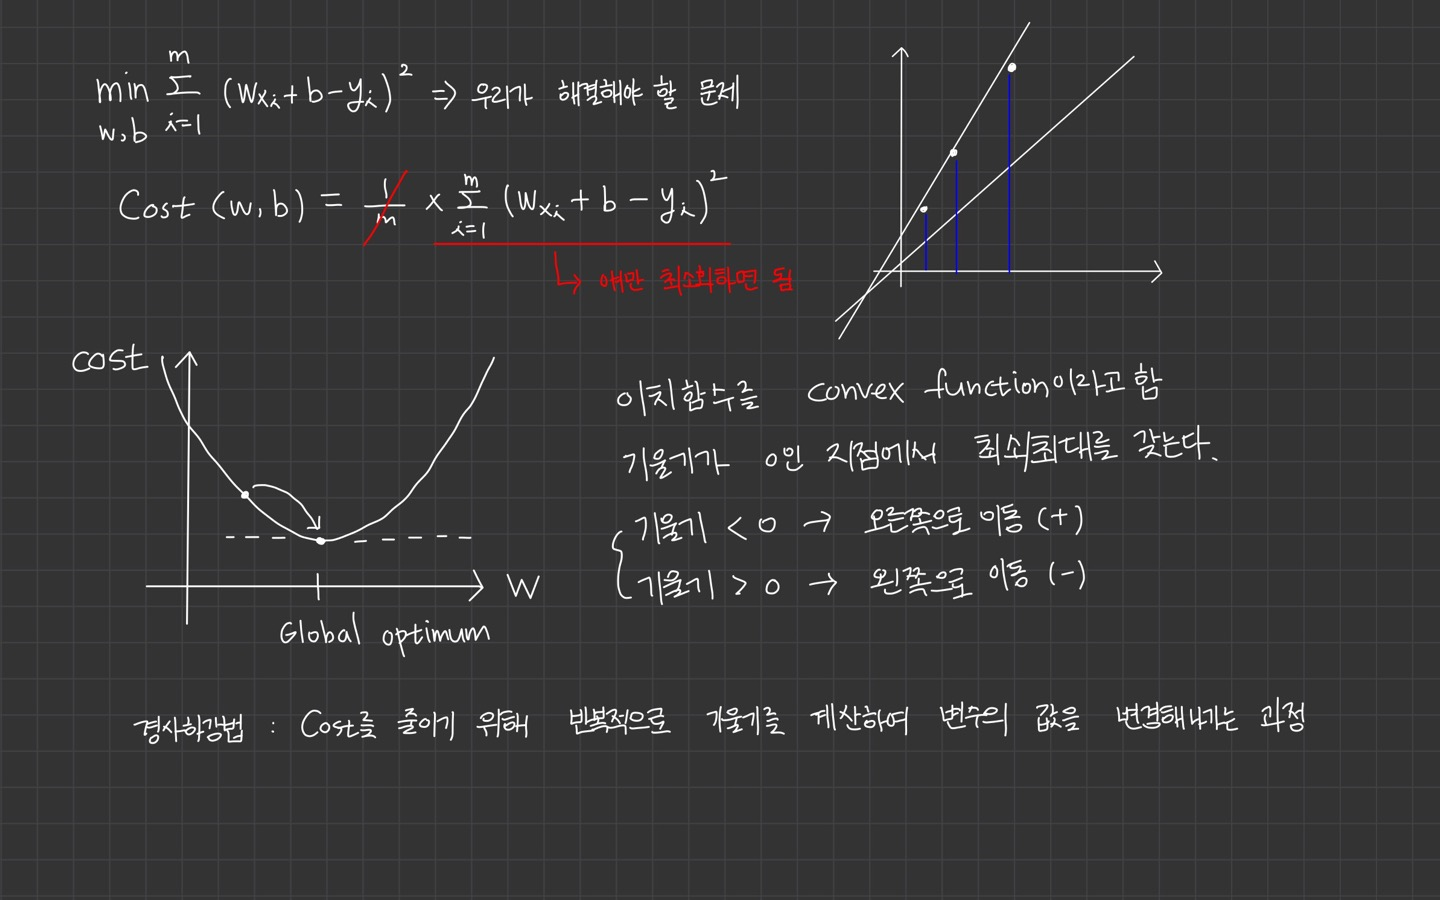 min Σ (wxi+b-yi)² => 우리가 해결해야 할 문제
m
w,b i=1
Cost (w,b) = 1/m × Σ (wxi+b-yi)²
m
i=1
↳ 얘만 최소화하면 됨
cost
W
Global optimum
이차함수를 convex function이라고 함
기울기가 0인 지점에서 최소/최대를 갖는다.
기울기 < 0 → 오른쪽으로 이동 (+)
기울기 > 0 → 왼쪽으로 이동 (-)
경사하강법 : Cost를 줄이기 위해 반복적으로 기울기를 계산하여 변수의 값을 변경해나가는 과정